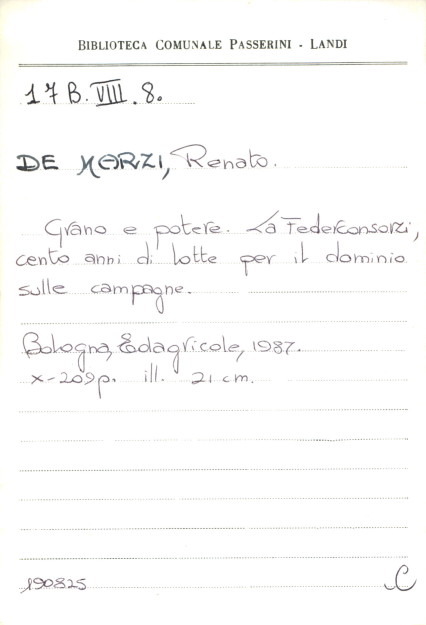 BIBLIOTECA COMUNALE PASSERINI - LANDI
17 B. VIII. 8.
DE MARZI, Renato.
Grano e potere. La Federconsorzi,
cento anni di lotte per il dominio
sulle campagne.
Bologna, Edagricole, 1987.
x-209p. ill. 21 cm.
190825
C